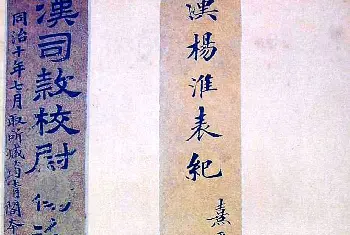 漢楊淮表紀
熹
漢司隸校尉
同治十年七月取所藏